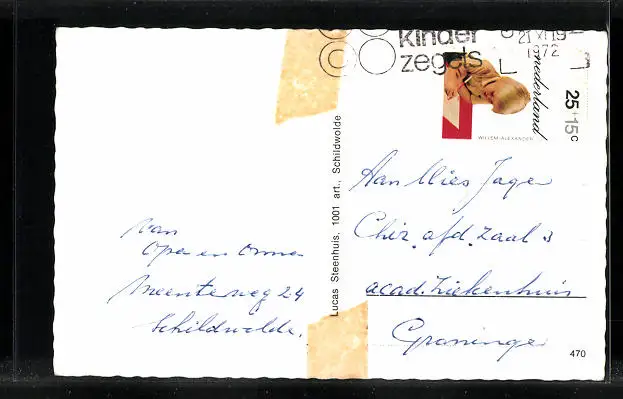 kinder
zegels
21 XI 19
1972
nederland
25+15c
WILLEM-ALEXANDER
Lucas Steenhuis, 1001 art., Schildwolde
van
Opa en Oma
Meenteweg 24
Schildwolde.
Aan Mies Jager
Chir. afd. Zaal 3
acad. Ziekenhuis
Groningen
470